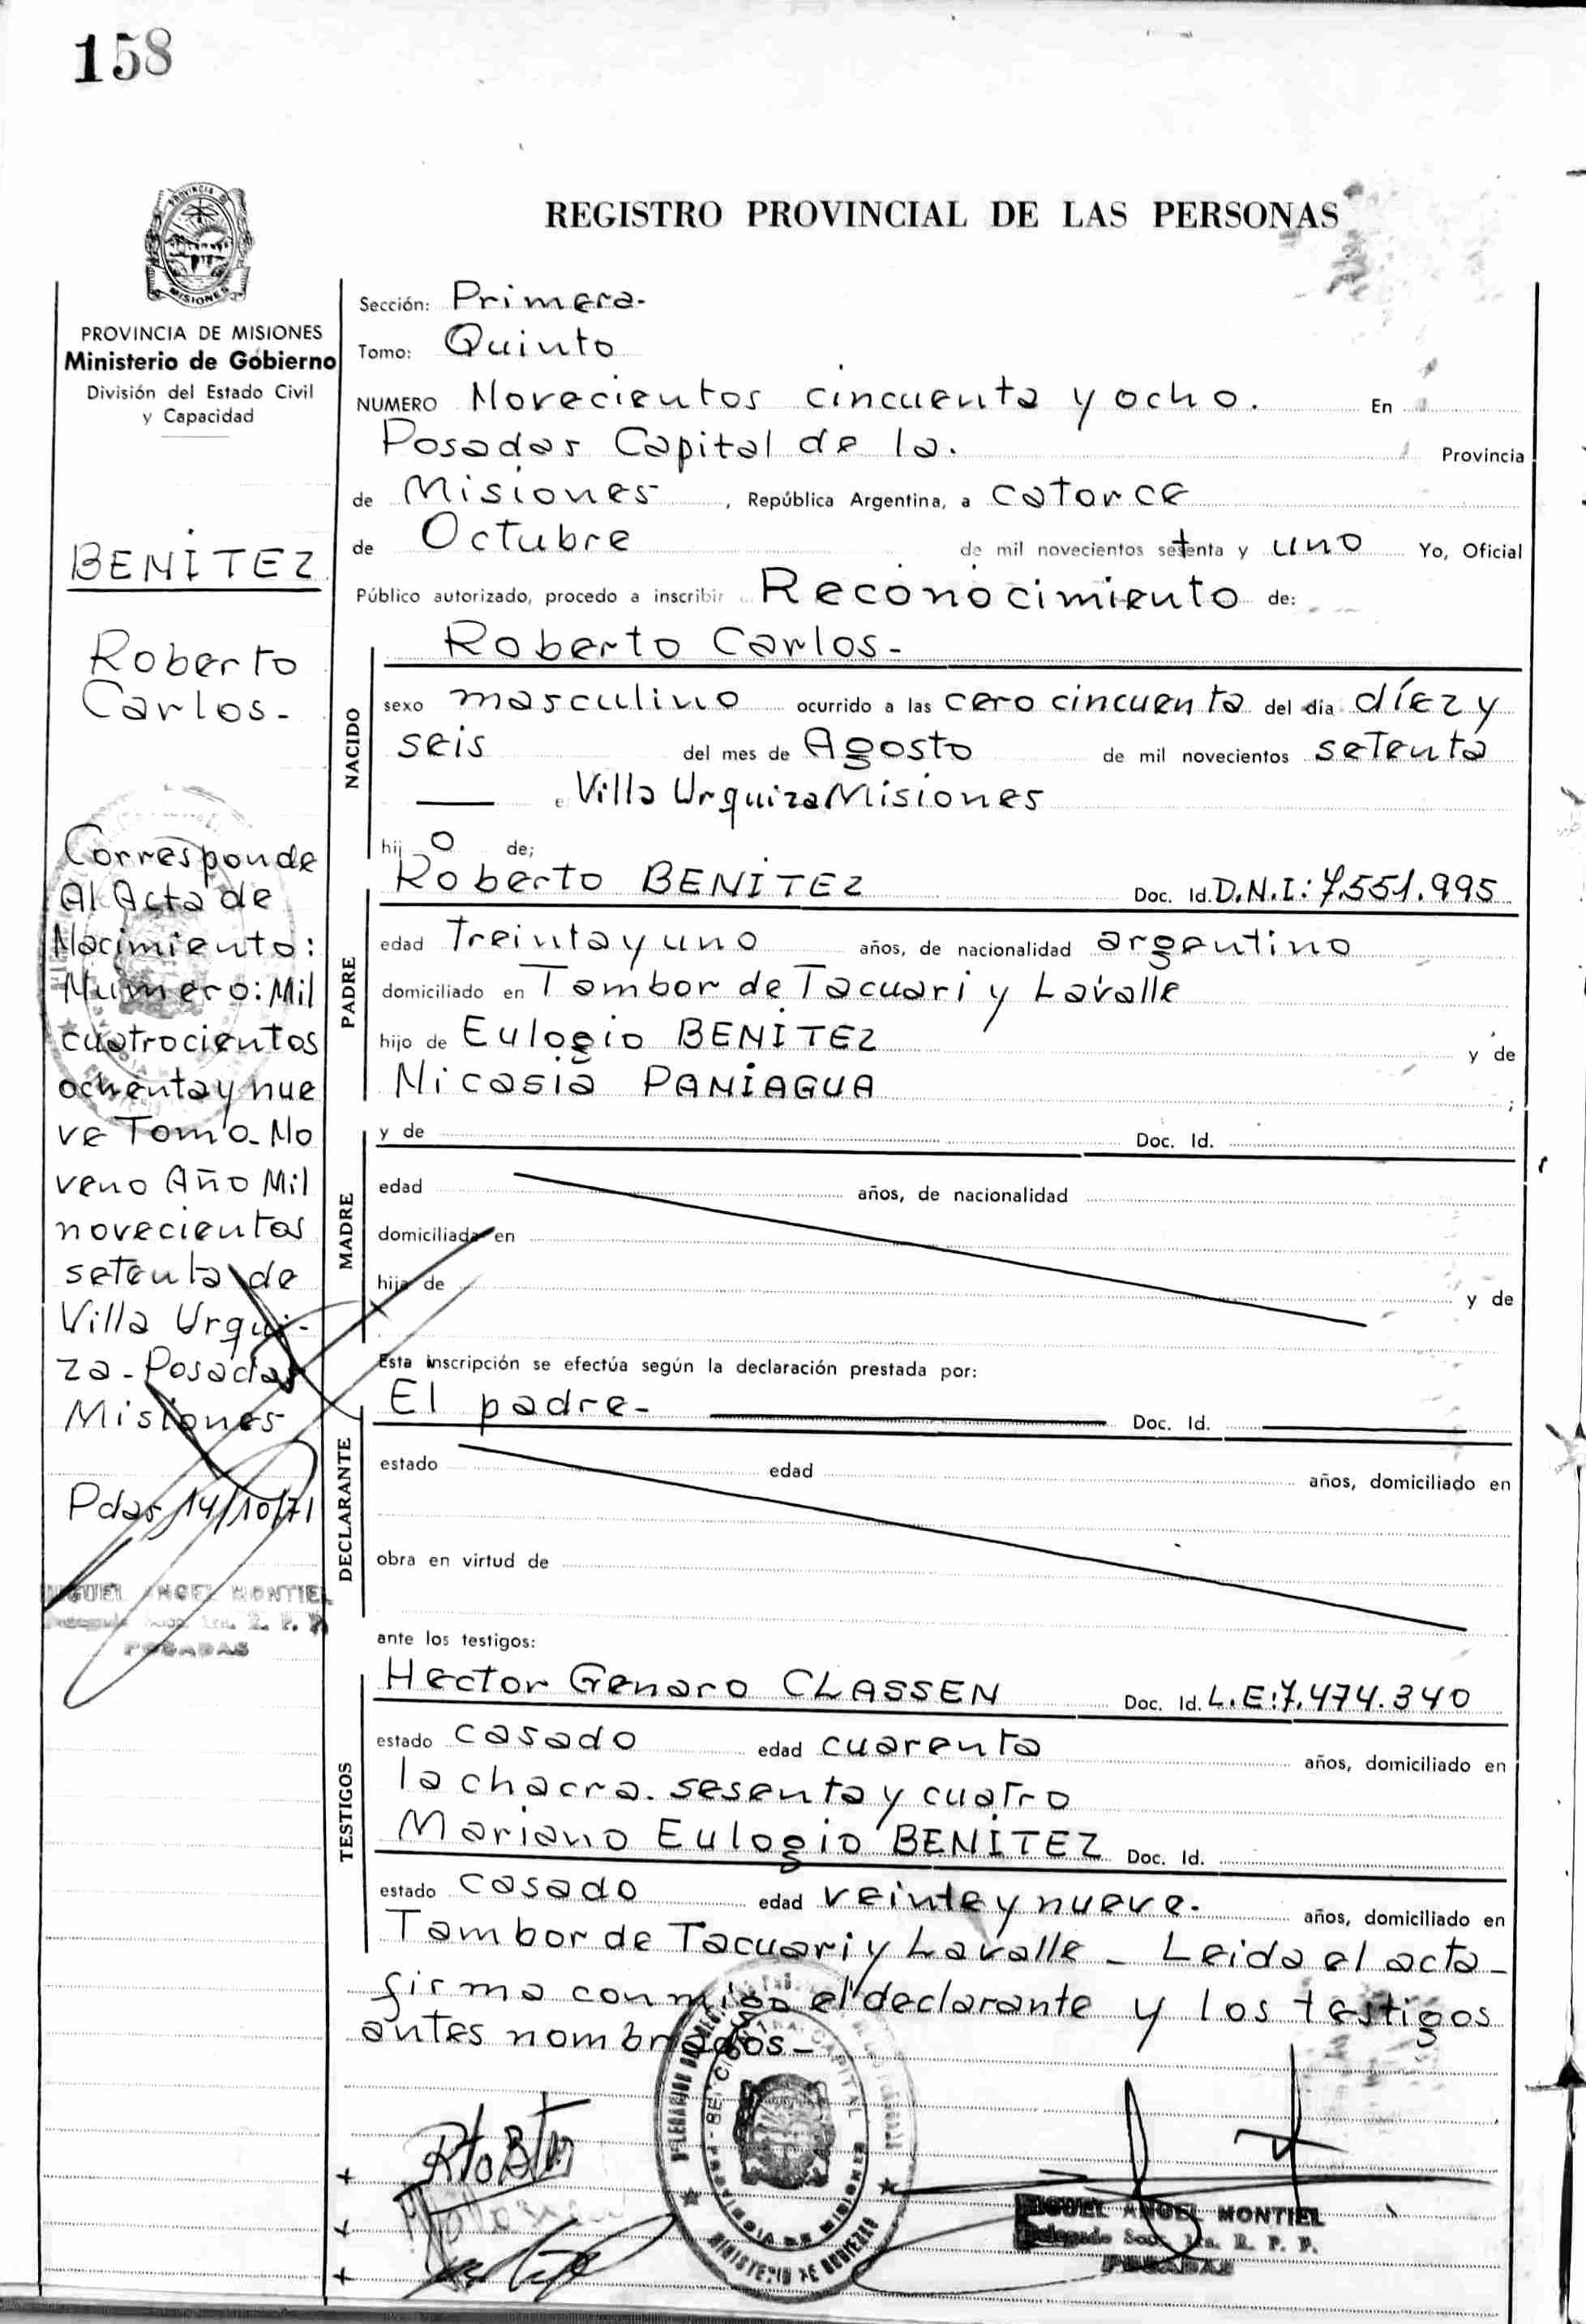 158
REGISTRO PROVINCIAL DE LAS PERSONAS
PROVINCIA
MISIONES
PROVINCIA DE MISIONES
Ministerio de Gobierno
División del Estado Civil
y Capacidad
BENÍTEZ
Roberto
Carlos-
Corresponde
Al Acta de
Nacimiento:
Número: Mil
cuatrocientos
ochenta y nue
ve Tomo- No
veno Año Mil
novecientos
setenta de
Villa Urqui-
za - Posadas
Misiones
Pdas 14/10/71
MIGUEL ANGEL MONTIEL
POSADAS
Sección: Primera-
Tomo: Quinto
NUMERO Novecientos cincuenta y ocho. En
Posadas Capital de la. Provincia
de Misiones, República Argentina, a catorce
de Octubre de mil novecientos setenta y uno Yo, Oficial
Público autorizado, procedo a inscribir Reconocimiento de:
Roberto Carlos-
NACIDO
sexo masculino ocurrido a las cero cincuenta del día díez y
seis del mes de Agosto de mil novecientos setenta
e Villa Urquiza Misiones
hij o de;
PADRE
Roberto BENÍTEZ Doc. Id. D.N.I: 7.551.995
edad Treinta y uno años, de nacionalidad argentino
domiciliado en Tambor de Tacuari y Lavalle
hijo de Eulogio BENÍTEZ y de
Nicasia PANIAGUA ;
MADRE
y de Doc. Id.
edad años, de nacionalidad
domiciliada en
hija de y de
Esta inscripción se efectúa según la declaración prestada por:
DECLARANTE
El padre- Doc. Id.
estado edad años, domiciliado en
obra en virtud de
ante los testigos:
TESTIGOS
Hector Genaro CLASSEN Doc. Id. L.E: 7.474.340
estado casado edad cuarenta años, domiciliado en
la chacra. sesenta y cuatro
Mariano Eulogio BENÍTEZ Doc. Id.
estado casado edad veinte y nueve. años, domiciliado en
Tambor de Tacuari y Lavalle - Leida el acta-
firma conmigo el declarante y los testigos
antes nombrados-
PROVINCIA DE MISIONES
MINISTERIO DE GOBIERNO
MIGUEL ANGEL MONTIEL
Delegado Secc. 1ra. R. P. P.
POSADAS